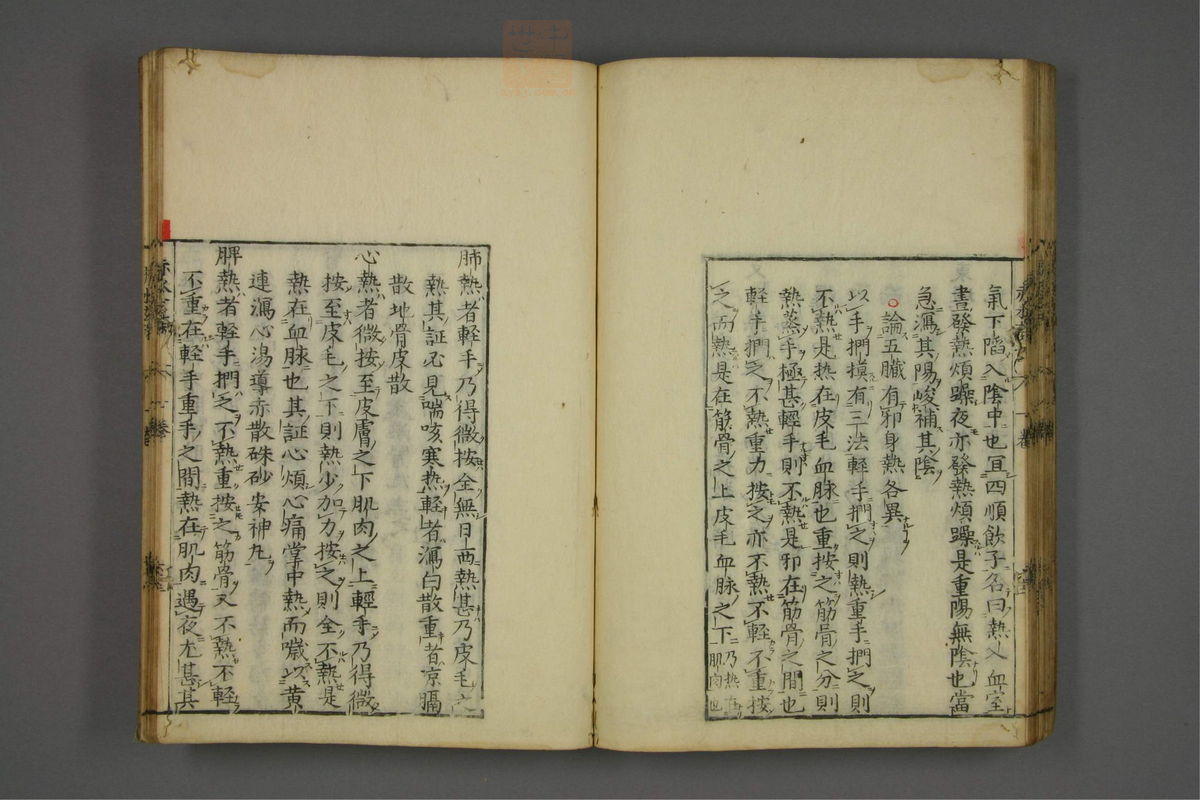 氣下陷入陰中也宜四順飲子名曰熱入血室
晝發熱煩躁夜亦發熱煩躁是重陽無陰也當
急瀉其陽峻補其陰
○論五臟有邪身熱各異
以手捫摸有三法輕手捫之則熱重手捫之則
不熱是热在皮毛血脉也重按之筋骨之分則
熱蒸手極甚輕手則不熱是邪在筋骨之間也
輕手捫之不熱重力按之亦不熱不輕不重按
之而熱是在筋骨之上皮毛血脉之下乃热在肌肉也
肺熱者輕手乃得微按全無日西熱甚乃皮毛之
熱其証必見喘咳寒热輕者瀉白散重者凉膈
散地骨皮散
心熱者微按至皮膚之下肌肉之上輕手乃得微
按至皮毛之下則熱少加力按之則全不熱是
熱在血脉也其証心煩心痛掌中熱而噦以黄
連瀉心湯導赤散硃砂安神丸
脾熱者輕手捫之不熱重按之筋骨又不熱不輕
不重在輕手重手之間熱在肌肉遇夜尤甚其